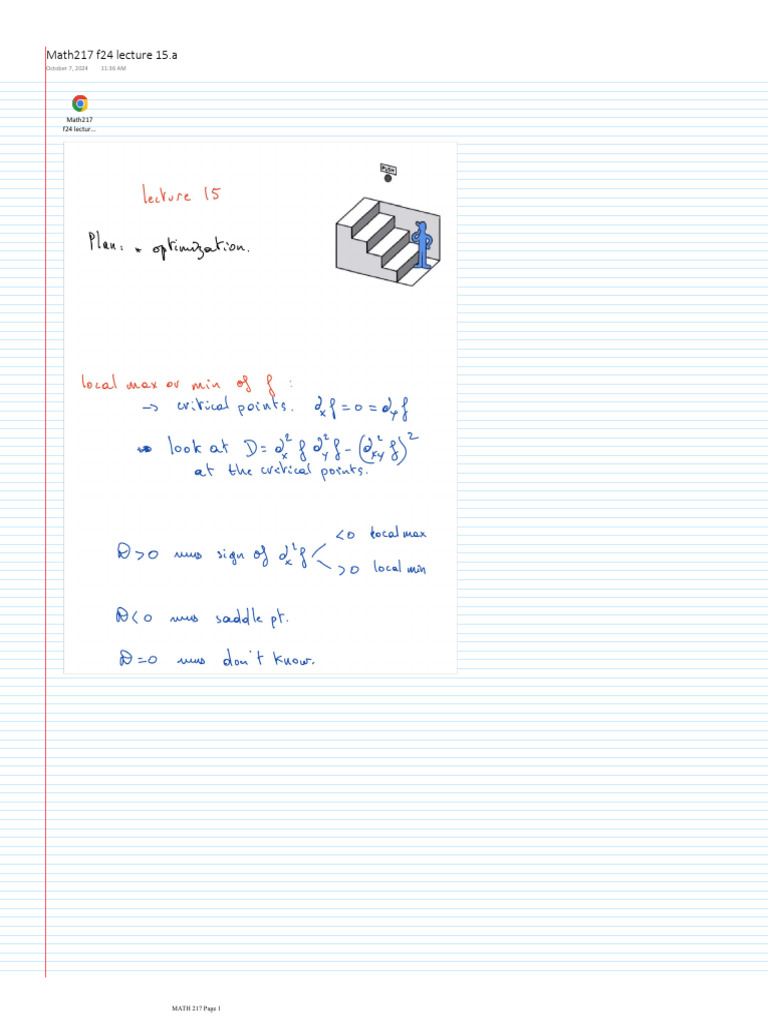 Math217 f24 lecture 15.a
October 7, 2024 11:36 AM
Math217
f24 lectur...
PUSH
lecture 15
Plan: * optimization.
local max or min of f :
→ critical points. ∂ₓf = 0 = ∂ᵧf
→ look at D = ∂²ₓf ∂²ᵧf - (∂²ₓᵧf)²
at the critical points.
D > 0 ⇝ sign of ∂²ₓf < 0 local max
> 0 local min
D < 0 ⇝ saddle pt.
D = 0 ⇝ don't know.
MATH 217 Page 1